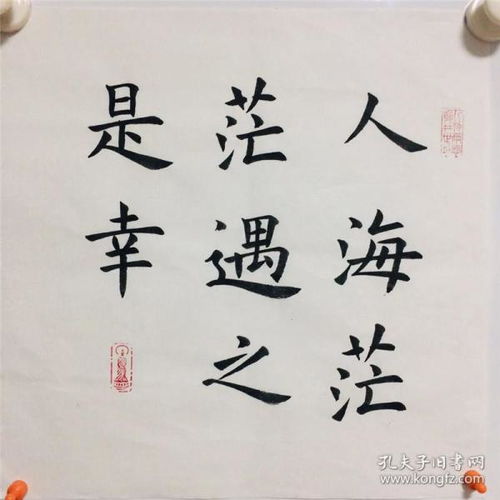 人海茫
茫遇之
是幸
孔夫子旧书网
www.kongfz.com